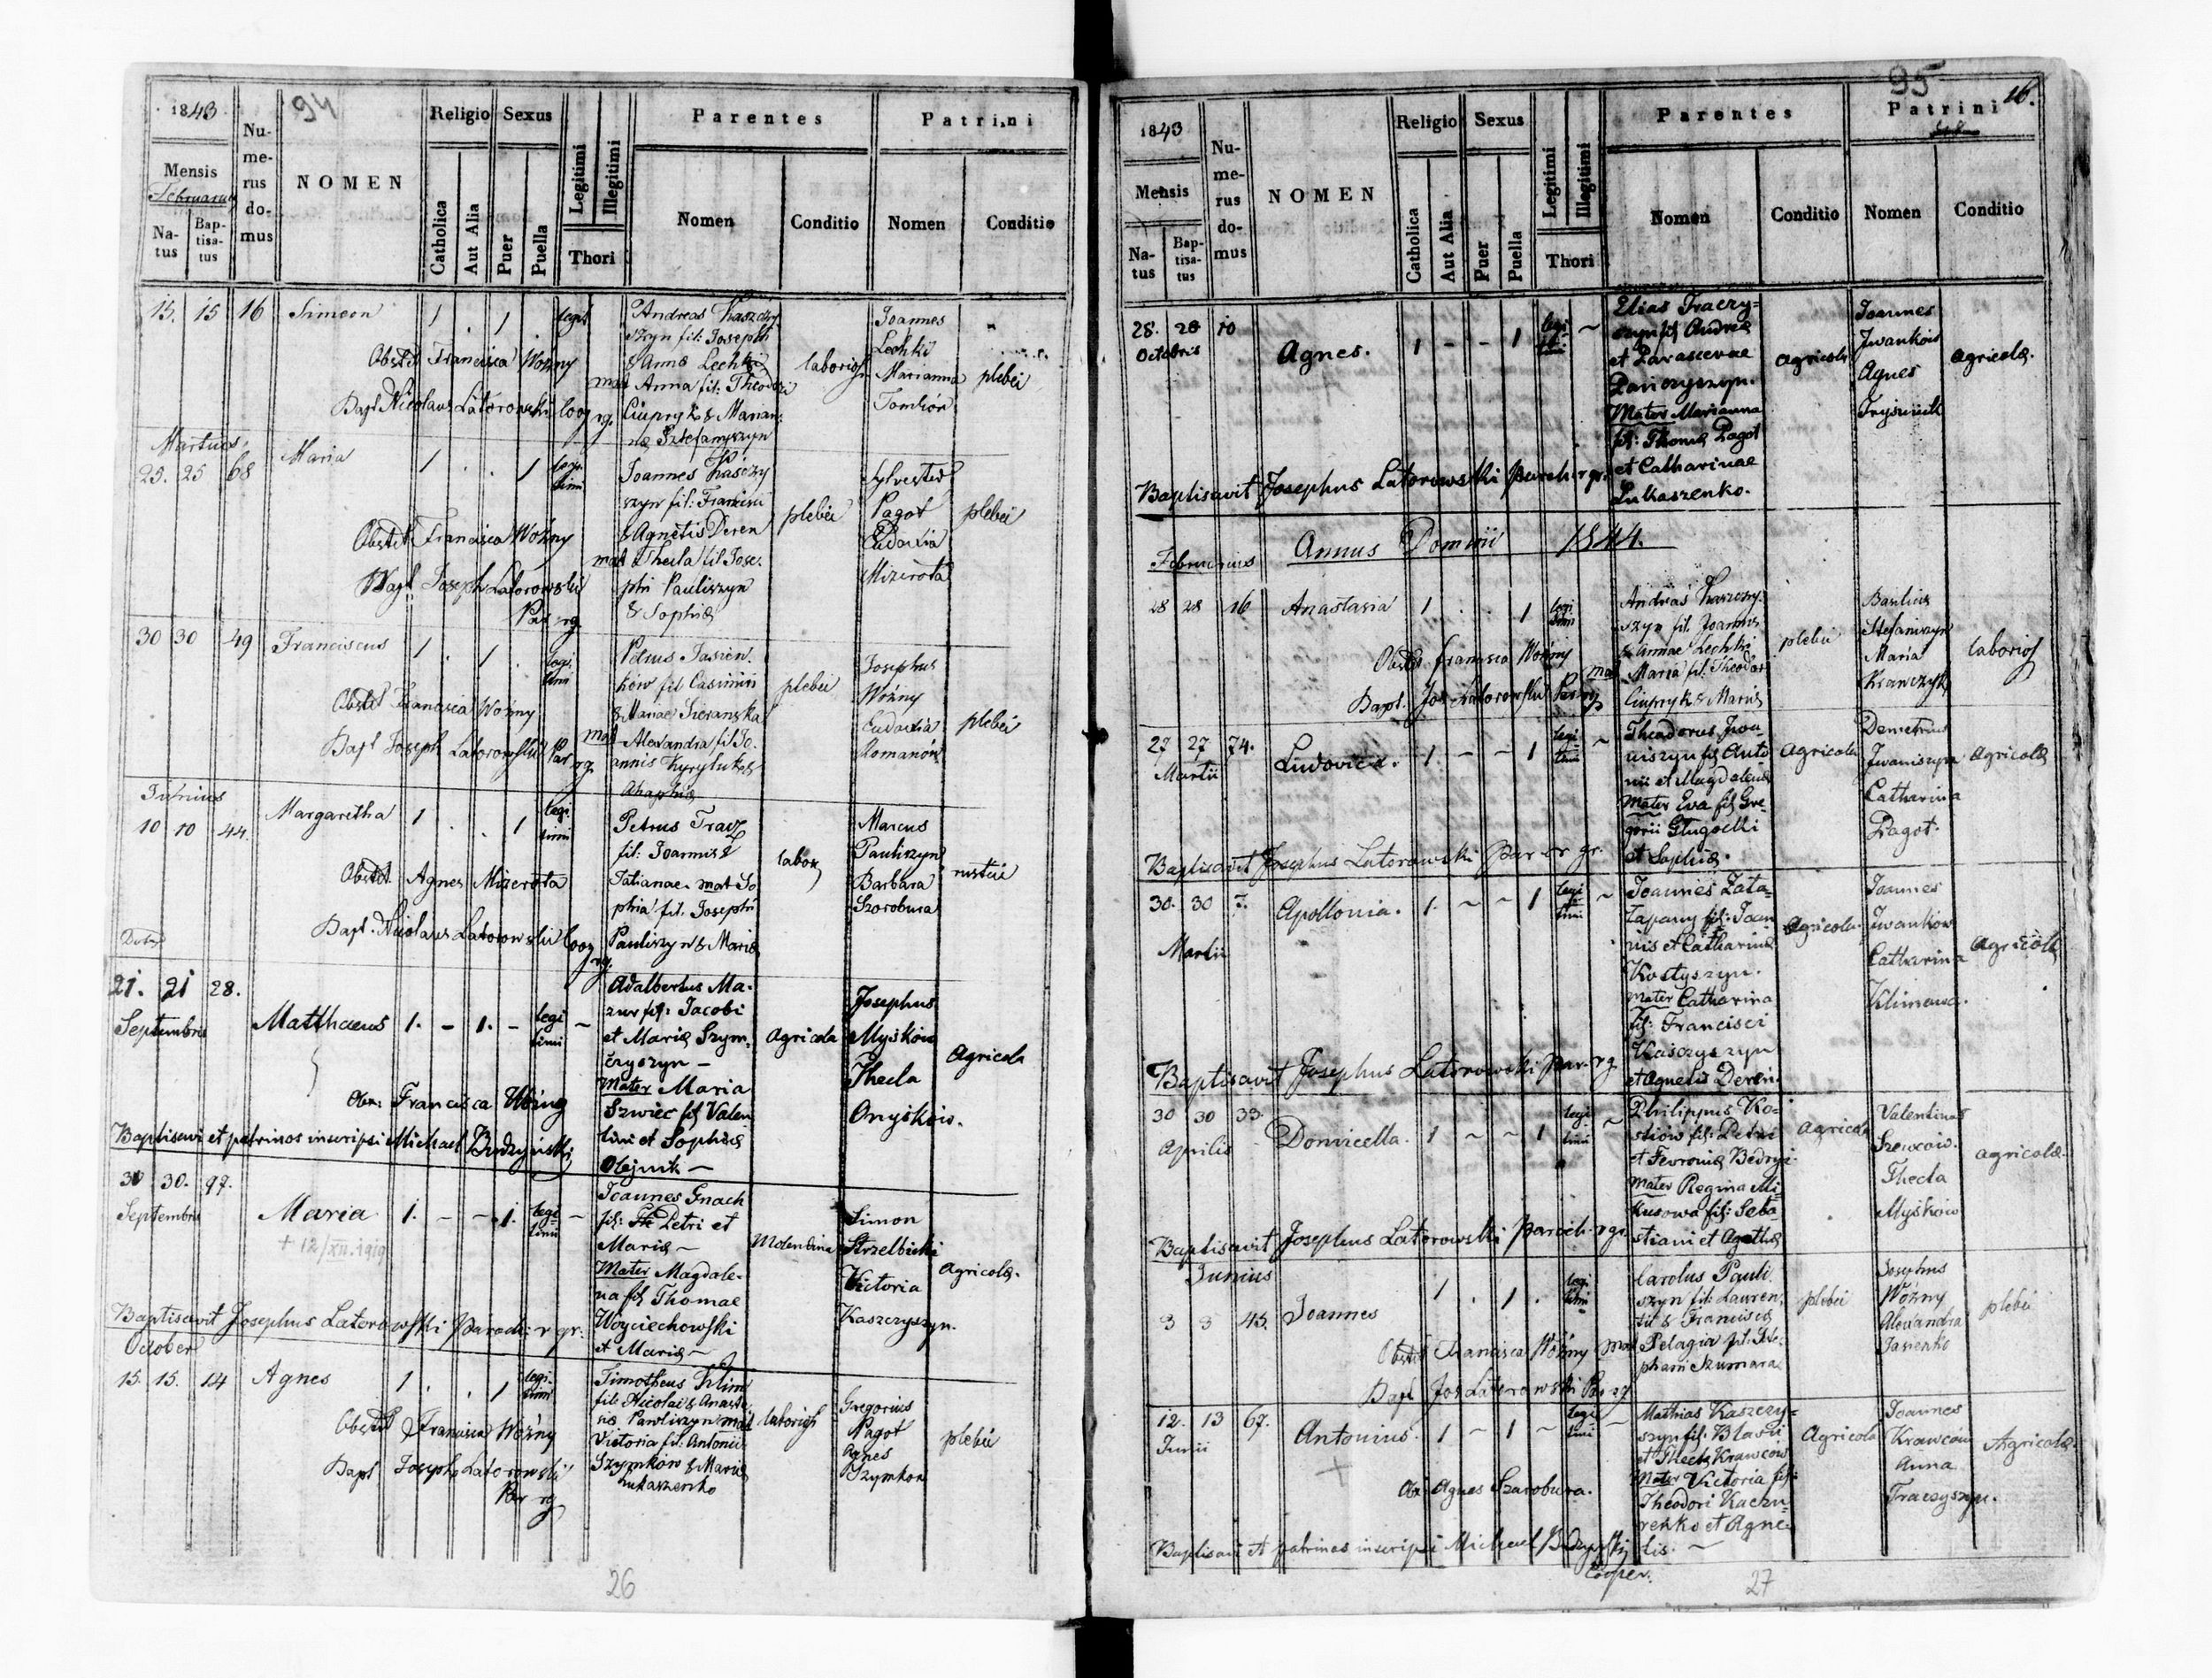 94
1843
Mensis
Februarius
Na-
tus
Bap-
tisa-
tus
Nu-
me-
rus
do-
mus
NOMEN
Religio
Catholica
Aut Alia
Sexus
Puer
Puella
Legitimi
Illegitimi
Thori
Parentes
Nomen
Conditio
Patrini
Nomen
Conditio
15. 15 16 Simeon 1 . 1 . legit
Andreas Kaszczy
szyn fil: Joseph
& Anna Lechki
mat Anna fil: Theodori
Ciupryk & Marian-
na Sztefanyszyn
Joannes
Lechki
Marianna
plebei
Obstet Francisca Woźny
Bapt Nicolaus Latorowski Coop rg.
Martius
25. 25 68 Maria 1 . . 1 legi-
timi
Joannes Kaszczy
szyn fil: Francisci
& Agnetis Deren
mat Thecla fil Jose-
phi Pauliszyn
& Sophia
plebei
Sylvester
Pagot
Eudoxia
Mizerota
plebei
Obstet Francisca Woźny
Bapt Joseph Latorowski
Par rg
30 30 49 Franciscus 1 . 1 . legi-
timi
Petrus Jasien-
ków fil Casimiri
& Mariae Sieranska
mat Alexandra fil Jo-
annis Kyryluk &
Ahaphia
plebei
Josephus
Woźny
Eudoxia
Romanów
plebei
Obstet Francisca Woźny
Bapt Joseph Latorowski Par rg
Junius
10 10 44. Margaretha 1 . . 1 legi-
timi
Petrus Tracz
fil: Joannis &
Tatianae mat So
phia fil. Josephi
Pauliszyn & Maria
labor
Marcus
Pauliszyn
Barbara
Szarobura
rustici
Obstet Agnes Mizerota
Bapt. Nicolaus Latorowski Coop rg.
21. 21 28.
Septembris Matthaeus 1. - 1. - legi
timi ~
Adalbertus Ma-
zur fil: Jacobi
et Maria Szym-
czyszyn —
Mater Maria
Szwiec fil Valen
tini et Sophia
Olejnik —
Agricola
Josephus
Myśkow
Thecla
Onyśkow.
Agricola
Obs: Francisca Woźng
Baptisavi et patrinos inscripsi Michael Budzyński
30 30. 97.
Septembris Maria 1. - - 1. legi-
timi ~
+ 12/XII.1919
Joannes Gnach
fil: Petri et
Maria —
Mater Magdale-
na fil Thomae
Wojciechowski
et Maria —
Simon
Strzelbicki
Victoria
Kaszczyszyn.
Agricola.
Baptisavit Josephus Latorowski Paroch: r gr.
October
15. 15. 14 Agnes 1 . . 1 legi-
timi
Timotheus Klim
fil: Nicolai & Anasta
sia Pawliszyn mat
Victoria fil: Antonii
Szymków & Maria
Lukaszenko
Gregorius
Pagot
Agnes
Szymkow
plebei
Obstet Francisca Woźny
Bapt Joseph Latorowski
Par rg
26
95
16.
1843
Mensis
Na-
tus
Bap-
tisa-
tus
Nu-
me-
rus
do-
mus
NOMEN
Religio
Catholica
Aut Alia
Sexus
Puer
Puella
Legitimi
Illegitimi
Thori
Parentes
Nomen
Conditio
Patrini
Nomen
Conditio
28. 28 10
Octobris Agnes. 1 - - 1 legi
timi ~
Elias Traczy-
szyn fil Andrea
et Parascevae
Panczyszyn.
Mater Marianna
fil: Thoma Pagot
et Catharinae
Lukaszenko.
Agricola
Joannes
Iwankow
Agnes
agricola.
Baptisavit Josephus Latorowski Paroch r gr.
Annus Domini 1844.
Februarius
28 28 16 Anastasia 1 . . 1 legi
timi
Andreas Kaszczy-
szyn fil. Joannis
& Annae Lechki
mat Maria fil: Theodori
Ciupryk & Maria
plebei
Basilius
Stefaniszyn
Maria
Krawczyk
Obstet Francisca Woźny
Bapt. Jos Latorowski Par rg
27 27 74.
Martii Ludovica. 1 ~ ~ 1 legi
timi ~
Theodorus Iwa
niszyn fil Anto
nii et Magdalena
Mater Eva fil Gre
gorii Glugocki
et Sophia.
Agricola
Demetrius
Iwaniszyn
Catharina
Pagot.
agricola
Baptisavit Josephus Latorowski Par r gr.
30. 30 7.
Martii Apollonia. 1. ~ ~ 1 legi
timi ~
Joannes Zata-
fil: Joan
nis et Catharina
Kostyszyn.
Mater Catharina
fil: Francisci
Kaszczyszyn
et Agnetis Deren.
Agricola.
Joannes
Iwankow
Catharina
Klimowa.
Agricola
Baptisavit Josephus Latorowski Par. rg
30 30 33.
Aprilis Domicella. 1 ~ ~ 1 legi
timi ~
Philippus Ko-
stiów fil: Petri
et Fevronia Bedryj.
Mater Regina Mi-
kusowa fil: Seba
stiani et Agatha
Agricola
Valentinus
Szewców.
Thecla
Myśkow
agricola.
Baptisavit Josephus Latorowski Paroch. r gr.
Junius
3 3 43. Joannes 1 . 1 . legi
timi
Carolus Pauli
szyn fil: Lauren-
tii & Francisca
mat Pelagia fil: Ste-
phani Szumara
plebei
Josephus
Woźny
Alexandra
Jasienko
plebei
Obstet Francisca Woźny
Bapt Jos Latorowski Par rg
12. 13 67.
Junii Antonius. 1 ~ 1 ~ legi
timi ~
+
Mathias Kaszczy-
szyn fil: Blasii
et Thecla Krawcow
Mater Victoria fil:
Theodori Kaczu-
renko et Agne-
tis. ~
Agricola
Joannes
Krawców
Anna
Traczyszyn.
Agricola.
Ob: Agnes Szarobura.
Baptisavi et patrinos inscripsi Michael Budzyński
Cooper.
27